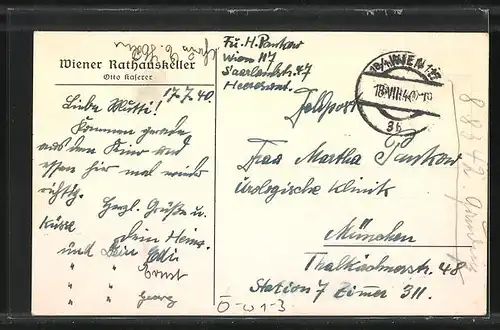 Wiener Rathauskeller
Otto Kaserer
17.7.40.
Liebe Mutti!
Kommen gerade
aus dem Kino und
essen hir mal wieder
richtig.
Herzl. Grüße u.
Küsse Dein Heinz.
und Dein Edi
" " Ernst
" " Georg
Fü. H. Pankow
Wien 117
Saarlandstr. 47
Feldpost
WIEN 117
18.VIII.40
3b
Frau Martha Pankow
Urologische Klinik
München
Thalkirchnerstr. 48
Station 7 Zimmer 311.
Ö-W 1-3